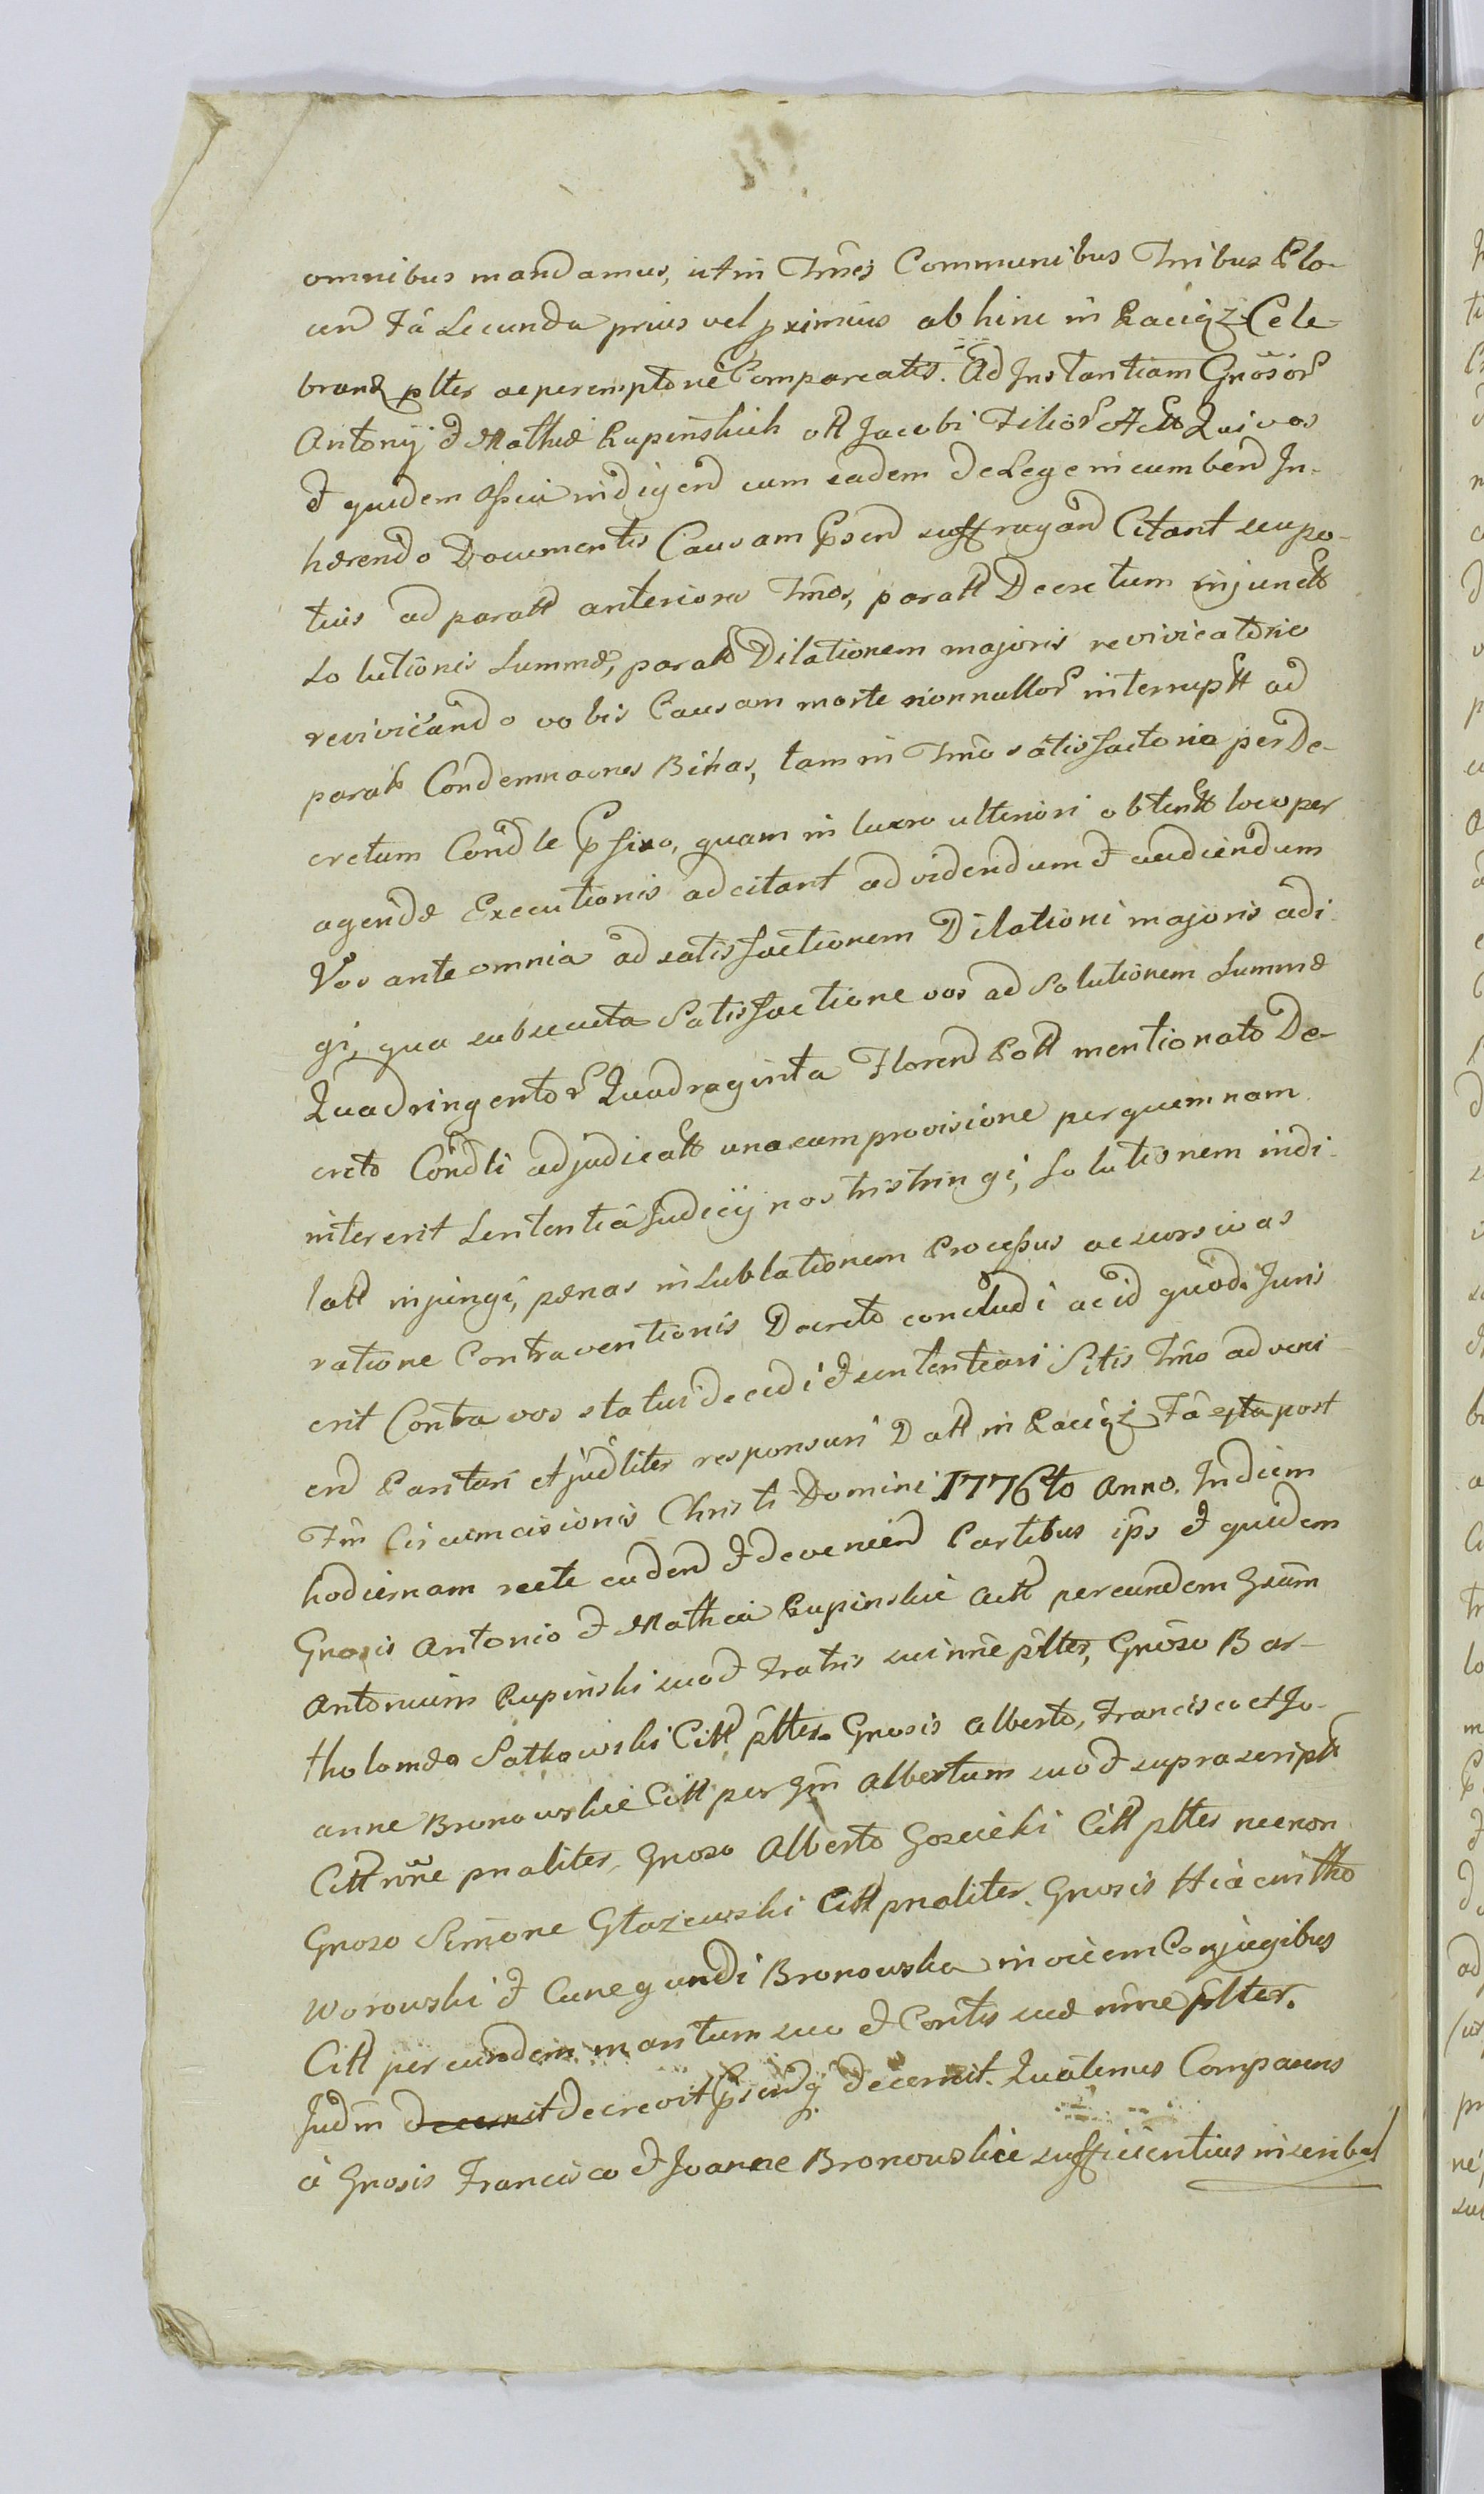 omnibus mandamus, ut in Tmes Communibus Tribus Plo-
cen Fâ Secunda prius vel pximius ab hinc in Raciąż Cele-
brand plter ac peremptorie Compareatis. Ad Instantiam Gnosor
Antonij & Mathiæ Rupinskich olt Jacobi Filior Actt Qui vos
& quidem assia indigend cum eadem de Lege incumbend In-
hærendo Documentis Causam Psend suffragand Citant seu po-
tius ad paratt anteriora Tmos, paratt Decretum injunctt
Solutionis Summæ, paratt Dilationem majoris revivicatorio
revivicando vobis Causam morte nonnullor interruptt ad
paratt Condemnaones Binas, tam in Tmo satisfactorio per De-
cretum Condle Pfixo, quam in lucro ulteriori obtentt loco per
agendæ Executionis adcitant ad videndum & audiendum
Vos ante omnia ad satisfactionem Dilationi majoris adi-
gi, qua subsecuta Satisfactione vos ad Solutionem Summæ
Quadringentor Quadraginta Floren Poll mentionato De-
creto Condli adjudicatt una cum provisione per quemnam
intererit Sententia Judicij nostri stringi, Solutionem indi-
latt injungi, pænas in Sublationem Processus ac seorsivas
ratione Contraventionis Decreto concludi ac id quod Juris
erit Contra vos statui decedi & sententiari Sitis Tmo adveni-
end Parituri et judliter responsuri Datt in Raciąż Fâ exta post
Ftm Circumcisionis Christi Domini 1776to Anno. In diem
hodiernam recte cadend & deveniend Partibus ips & quidem
Gnosis Antonio & Mathia Rupinskie Actt per eundem Gsum
Antonium Rupinski suo & Fratris sui nne plter, Gnoso Bar-
tholomæo Satkowski Citt pltter. Gnosis Alberto, Francisco et Jo-
anne Bronowskie Citt per Gm Albertum suo & suprascriptt
Citt nne pnaliter, Gnoso Alberto Goscicki Citt plter necnon
Gnoso Simone Głażewski Citt pnaliter. Gnosis Hiacintho
Worowski & Cunegundi Bronowska invicem Conjugibus
Citt per eundem maritum suo & Contis suæ nne plter.
Judm decernit decrevit Psendq decernit. Quatenus Comparens
à Gnosis Francisco & Joanne Bronowskie sufficientius inscribat